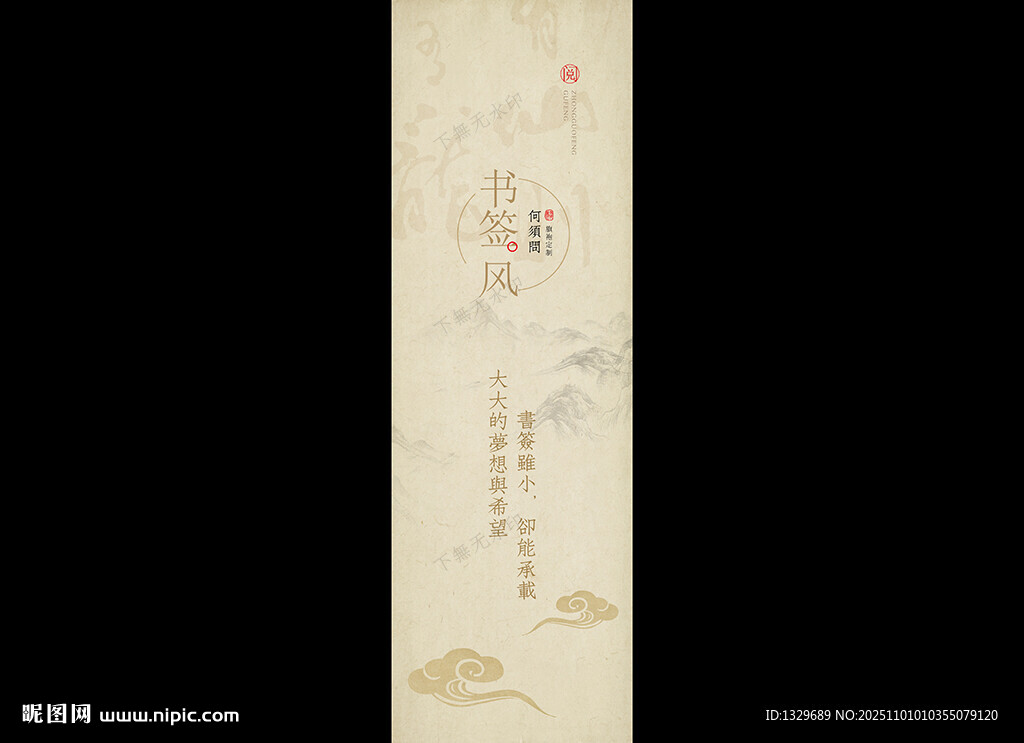 阅
ZHONGGUOFENG
GUFENG
书签风
何須問
旗袍定制
書簽雖小，卻能承載
大大的夢想與希望
下無无水印
下無无水印
下無无水印
昵图网 www.nipic.com
ID:1329689 NO:20251101010355079120